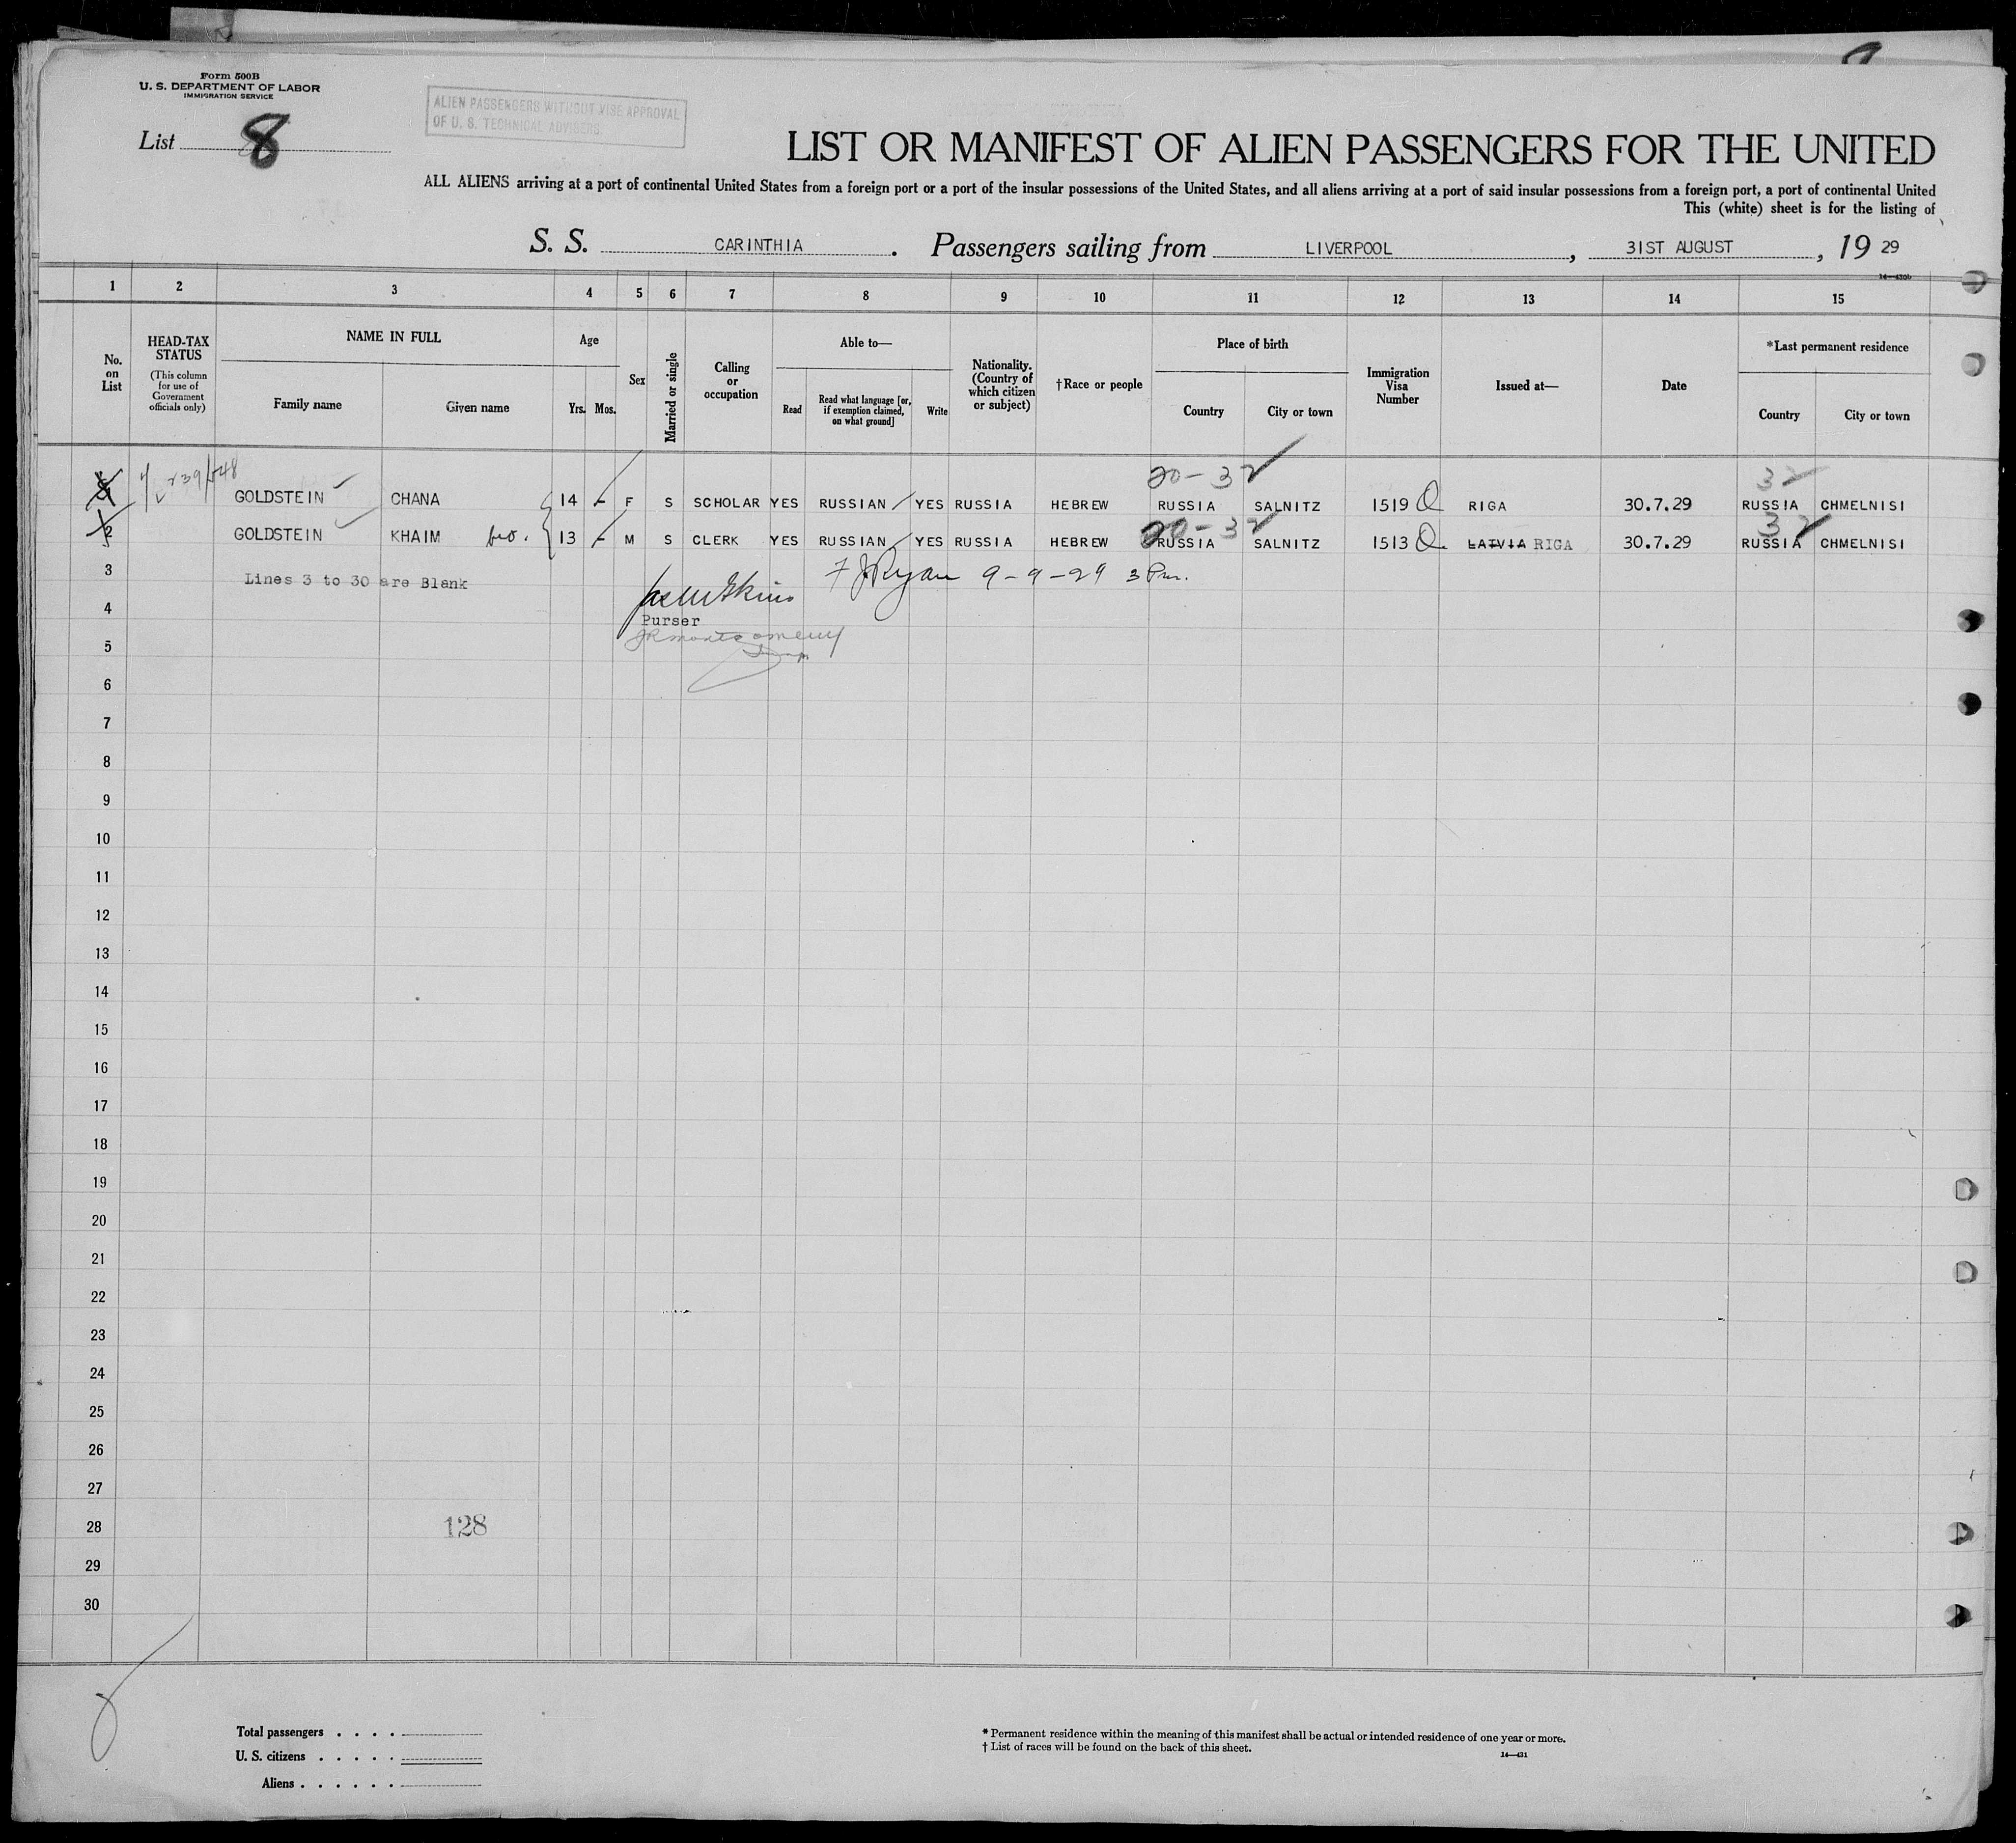 Form 500B
U. S. DEPARTMENT OF LABOR
IMMIGRATION SERVICE
List 8
ALIEN PASSENGERS WITHOUT VISE APPROVAL
OF U. S. TECHNICAL ADVISERS
LIST OR MANIFEST OF ALIEN PASSENGERS FOR THE UNITED
ALL ALIENS arriving at a port of continental United States from a foreign port or a port of the insular possessions of the United States, and all aliens arriving at a port of said insular possessions from a foreign port, a port of continental United
This (white) sheet is for the listing of
S. S. CARINTHIA. Passengers sailing from LIVERPOOL, 31ST AUGUST, 19 29
1 2 3 4 5 6 7 8 9 10 11 12 13 14 15
No. on List
HEAD-TAX STATUS
(This column for use of Government officials only)
NAME IN FULL
Family name
Given name
Age
Yrs. Mos.
Sex
Married or single
Calling or occupation
Able to—
Read
Read what language [or, if exemption claimed, on what ground]
Write
Nationality. (Country of which citizen or subject)
†Race or people
Place of birth
Country
City or town
Immigration Visa Number
Issued at—
Date
*Last permanent residence
Country
City or town
20-32 32
GOLDSTEIN CHANA 14 - F S SCHOLAR YES RUSSIAN YES RUSSIA HEBREW RUSSIA SALNITZ 1519 Q RIGA 30.7.29 RUSSIA CHMELNISI
20-32 32
2 GOLDSTEIN KHAIM bro. 13 - M S CLERK YES RUSSIAN YES RUSSIA HEBREW RUSSIA SALNITZ 1513 Q. LATVIA RIGA 30.7.29 RUSSIA CHMELNISI
3 Lines 3 to 30 are Blank F J Ryan 9-9-29 3 Pm.
4 Purser
5
6
7
8
9
10
11
12
13
14
15
16
17
18
19
20
21
22
23
24
25
26
27
28 128
29
30
Total passengers . . . .
U. S. citizens . . . . .
Aliens . . . . . .
* Permanent residence within the meaning of this manifest shall be actual or intended residence of one year or more.
† List of races will be found on the back of this sheet.
14—431